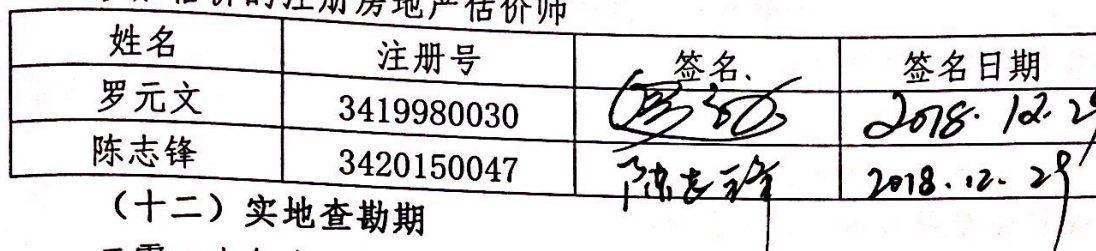 估价的注册房地产估价师
姓名 注册号 签名、 签名日期
罗元文 3419980030 2018.12.29
陈志锋 3420150047 陈志锋 2018.12.29
(十二)实地查勘期